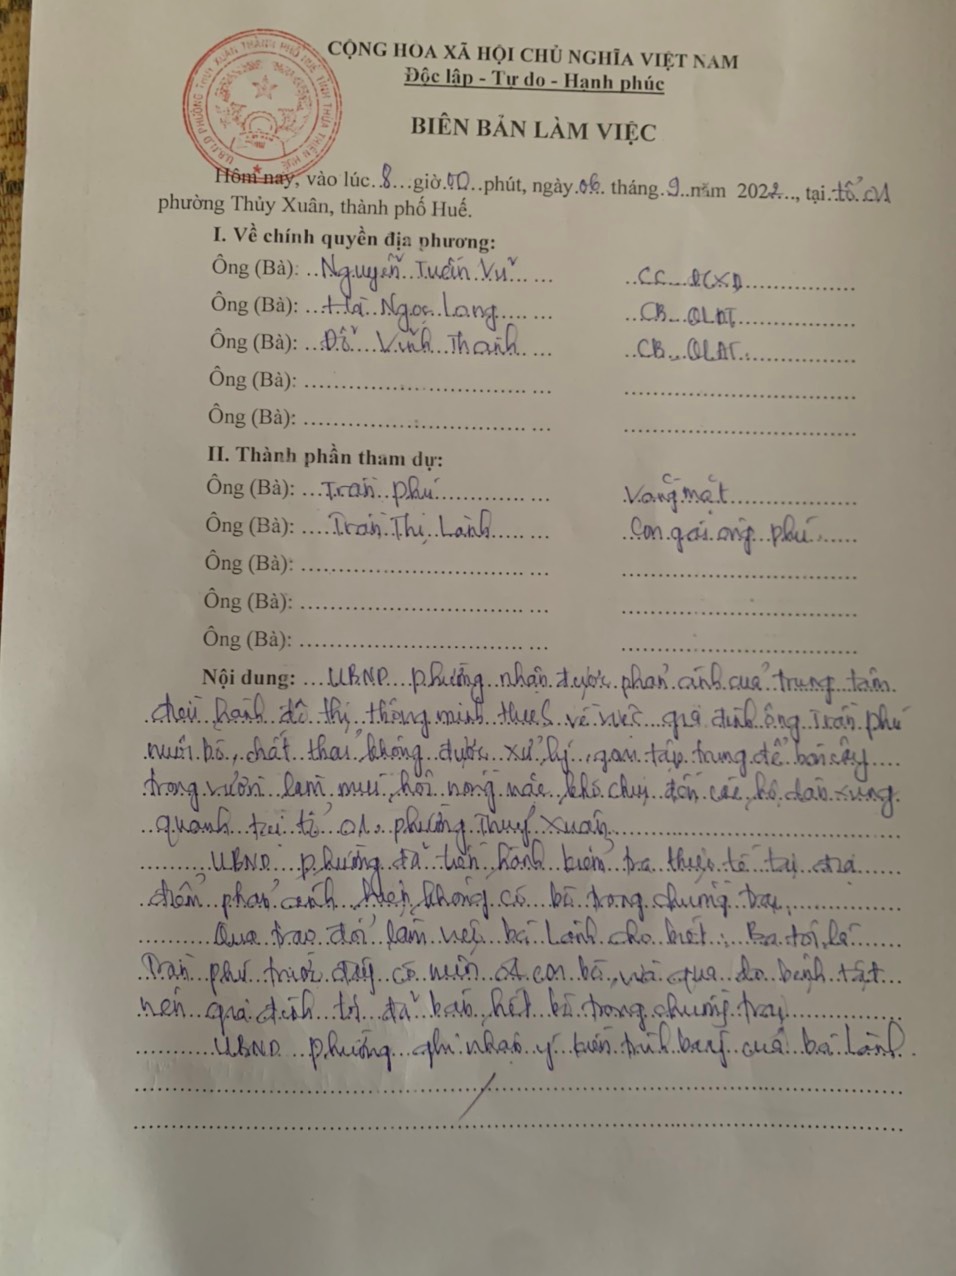 U.B.N.D PHƯỜNG THỦY XUÂN THÀNH PHỐ HUẾ TỈNH THỪA THIÊN HUẾ
CỘNG HÒA XÃ HỘI CHỦ NGHĨA VIỆT NAM
Độc lập - Tự do - Hạnh phúc
BIÊN BẢN LÀM VIỆC
Hôm nay, vào lúc..8...giờ.00..phút, ngày.06. tháng.9..năm 2022.., tại.tổ 01
phường Thủy Xuân, thành phố Huế.
I. Về chính quyền địa phương:
Ông (Bà): ..Nguyễn Tuấn Vũ ... CC ĐCXD
Ông (Bà): ... Ngọc Lang ... CB QLĐT
Ông (Bà): ...Đỗ Vĩnh Thanh ... CB QLĐT
Ông (Bà): ...
Ông (Bà): ...
II. Thành phần tham dự:
Ông (Bà): ...Trần Phú ... Vắng mặt
Ông (Bà): ...Trần Thị Lành ... Con gái ông Phú
Ông (Bà): ...
Ông (Bà): ...
Ông (Bà): ...
Nội dung: ...UBND phường nhận được phản ánh của trung tâm
điều hành đô thị thông minh về việc gia đình ông Trần Phú
nuôi bò, chất thải không được xử lý, gom tập trung để bón cây
trong vườn làm mùi hôi nồng nặc khó chịu đến các hộ dân xung
quanh tại tổ 01 phường Thủy Xuân
UBND phường đã tiến hành kiểm tra thực tế tại địa
điểm phản ánh hiện không có bò trong chuồng trại.
Qua trao đổi làm việc bà Lành cho biết: Ba tôi là
Trần Phú trước đây có nuôi 04 con bò, vừa qua do bệnh tật
nên gia đình tôi đã bán hết bò trong chuồng trại
UBND phường ghi nhận ý kiến trình bày của bà Lành.